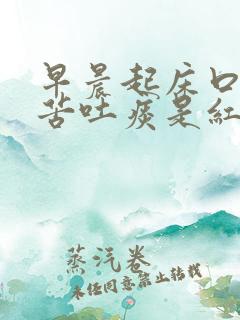 早晨起床口
苦吐痰是红
蒸汽卷
未经同意禁止转载